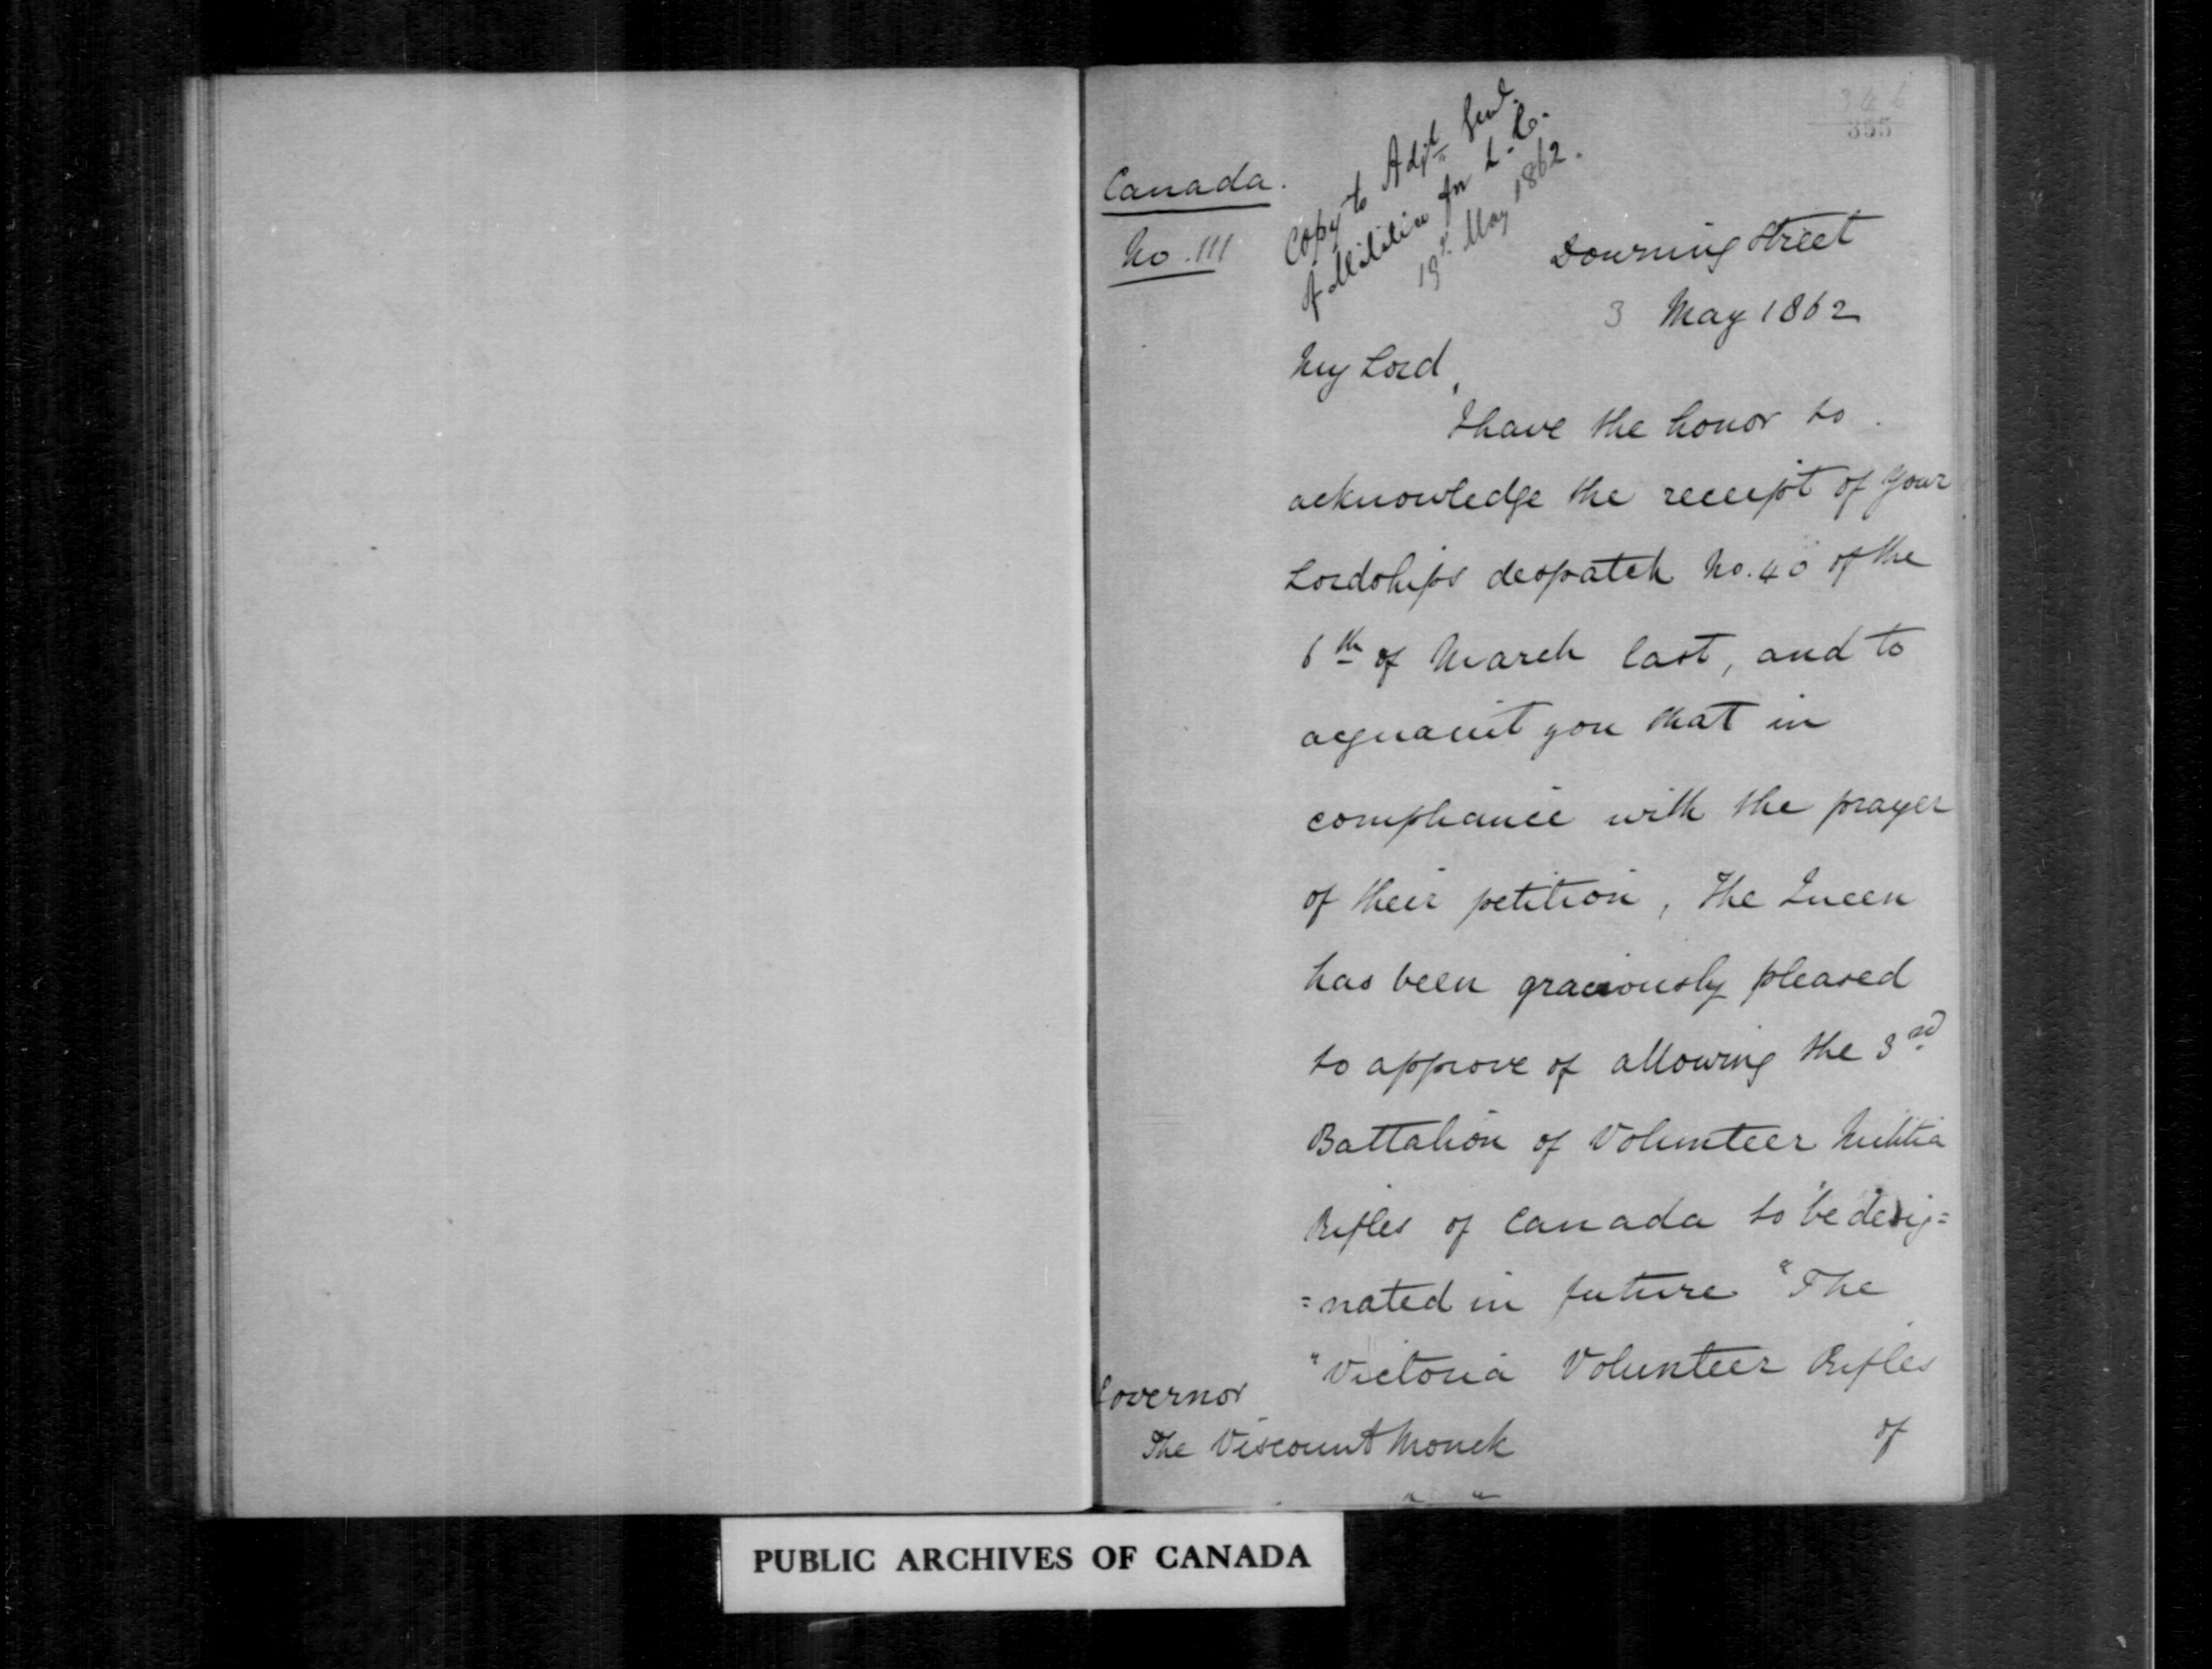 355
Canada.
No. 111
Copy to Adjt. Genl.
of Militia for L. C.
19th. May 1862.
Downing Street
3 May 1862
My Lord,
I have the honor to
acknowledge the receipt of your
Lordships despatch No. 40 of the
6th of March last, and to
acquaint you that in
compliance with the prayer
of their petition, The Queen
has been graciously pleased
to approve of allowing the 3rd
Battalion of Volunteer Militia
Rifles of Canada to be desig=
=nated in future "The
"Victoria Volunteer Rifles
of
Governor
The Viscount Monck
PUBLIC ARCHIVES OF CANADA